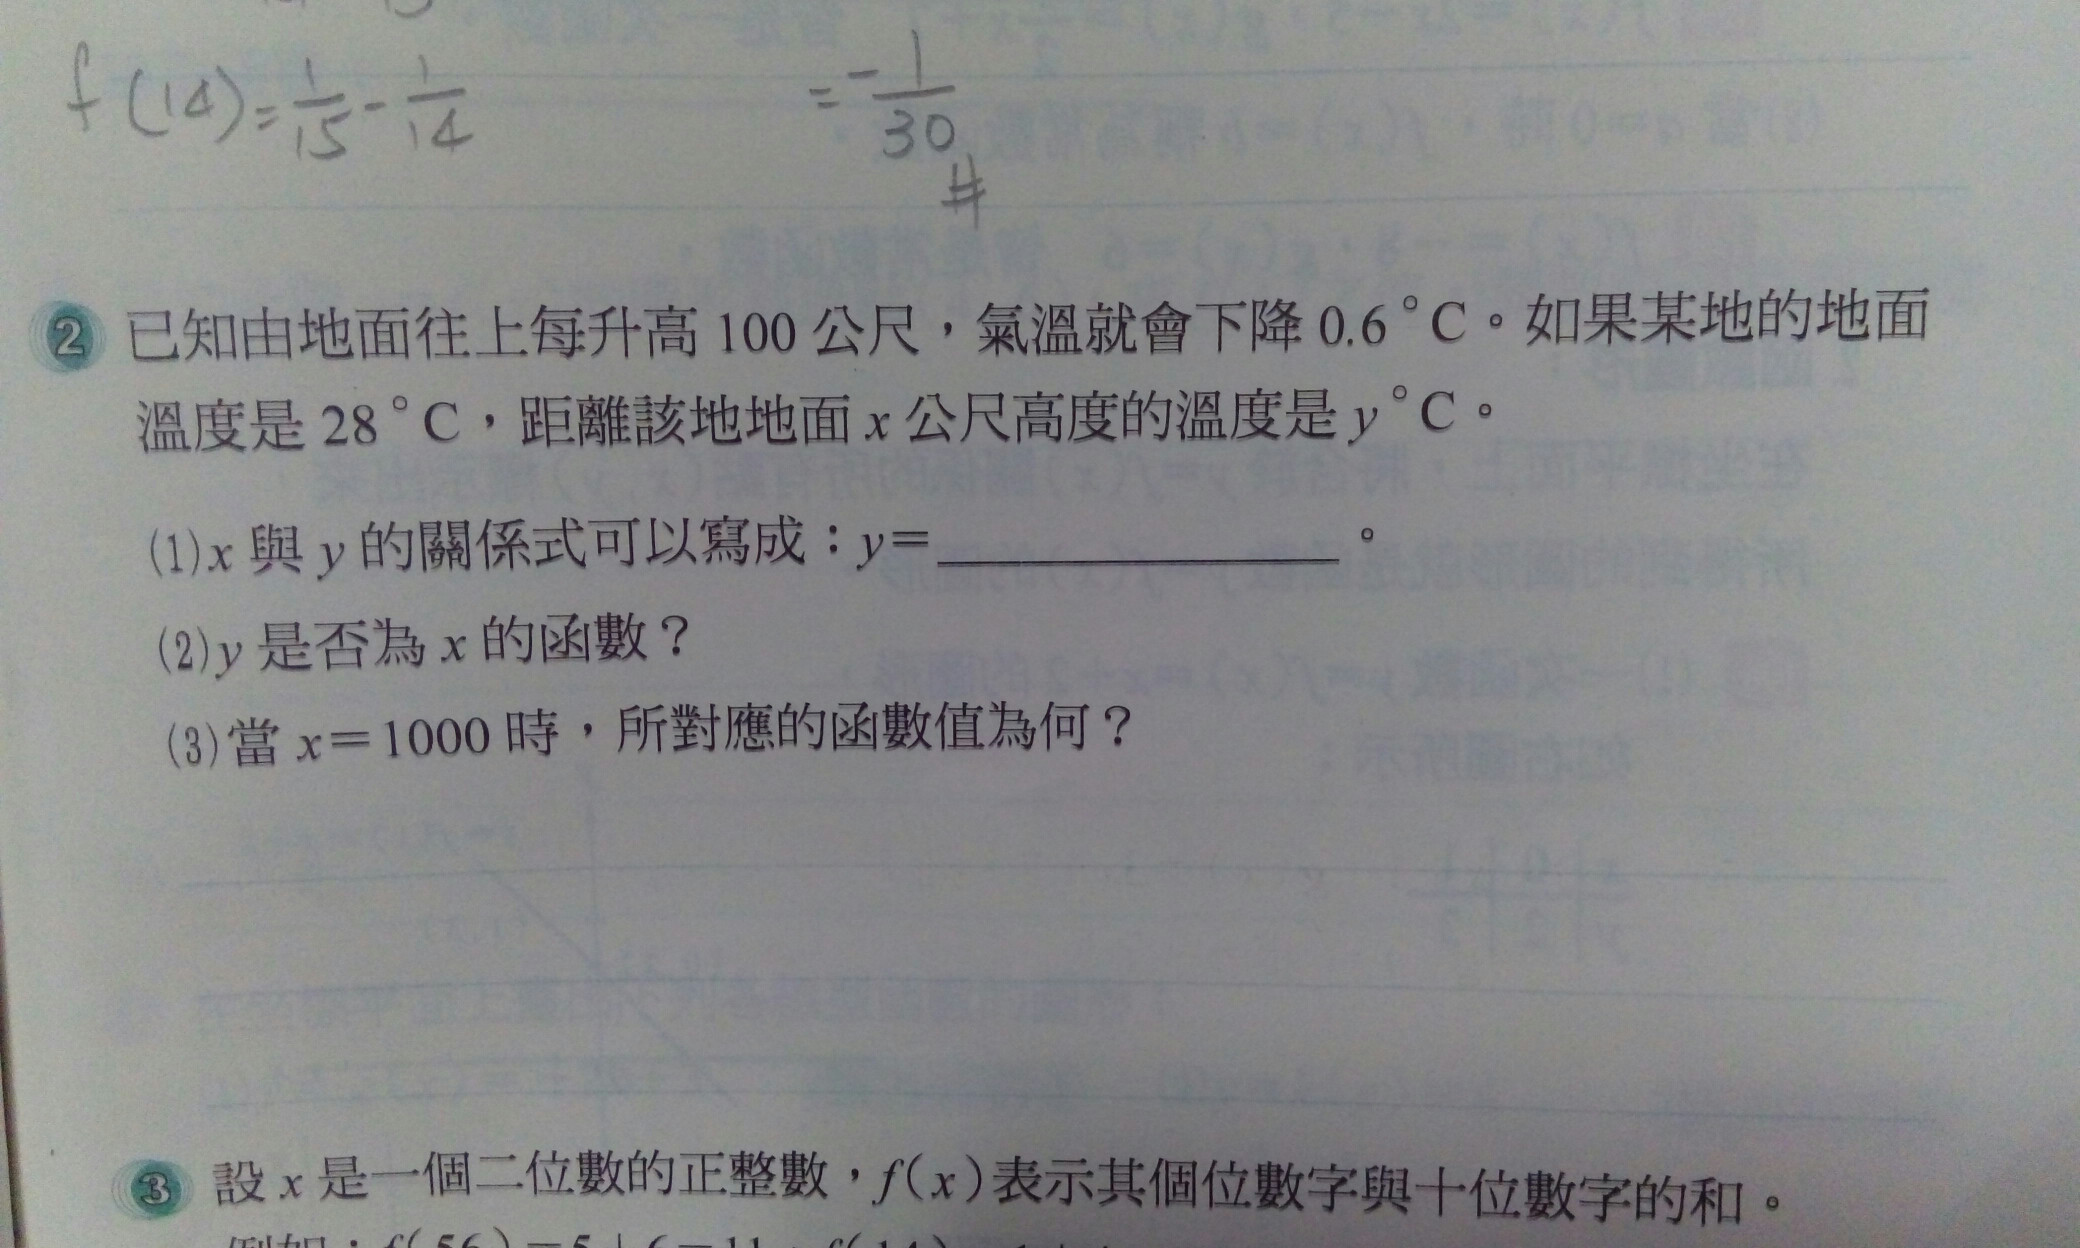 f(14)=1/15-1/14 =-1/30 #
2 已知由地面往上每升高 100 公尺，氣溫就會下降 0.6°C。如果某地的地面
溫度是 28°C，距離該地地面 x 公尺高度的溫度是 y°C。
(1)x 與 y 的關係式可以寫成：y=________。
(2)y 是否為 x 的函數？
(3)當 x=1000 時，所對應的函數值為何？
3 設 x 是一個二位數的正整數，f(x)表示其個位數字與十位數字的和。
例如：f(56)=5+6=11，f(14)